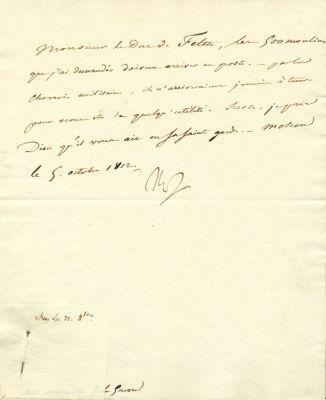 Monsieur le Duc de Feltre, les 500 moulins
que j'ai demandés doivent arriver en poste. — par les
charrois militaires, ils n'arriveraient jamais à tems
pour nous être de quelqu'utilité. Sur ce, je prie
Dieu qu'il vous ait en sa sainte garde. — Moscou
le 5. octobre 1812.
Np
Rep. le 22. 8bre
la Guerre